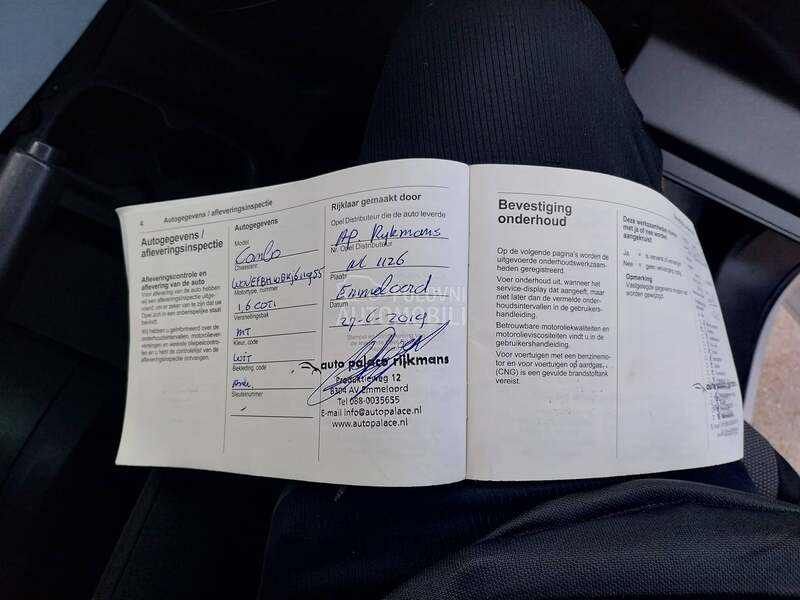 4 Autogegevens / afleveringsinspectie
Autogegevens /
afleveringsinspectie
Afleveringscontrole en
aflevering van de auto
Voor aflevering van de auto hebben
wij een afleveringsinspectie uitge-
voerd, om er zeker van te zijn dat uw
Opel zich in een onberispelijke staat
bevindt.
Wij hebben u geïnformeerd over de
onderhoudsintervallen, motoroliever-
versingen en vereiste oliepeilcontro-
les en u hebt de controlelijst van de
afleveringsinspectie ontvangen.
Autogegevens
Model
Combo
Chassisnr.
Motortype, nummer
1,6 CDTI
Versnellingsbak
MT
Kleur, code
WIT
Bekleding, code
Sleutelnummer
Rijklaar gemaakt door
Opel Distributeur die de auto leverde
AP. Rijkmans
Nr. Opel Distributeur
1126
Plaats
Emmeloord
Datum
27-6-2019
auto palace rijkmans
Produktieweg 12
8304 AV Emmeloord
Tel 088-0035655
E-mail info@autopalace.nl
www.autopalace.nl
POLOVNI
AUTOMOBILI
Bevestiging
onderhoud
Op de volgende pagina's worden de
uitgevoerde onderhoudswerkzaam-
heden geregistreerd.
Voer onderhoud uit, wanneer het
service-display dat aangeeft, maar
niet later dan de vermelde onder-
houdsintervallen in de gebruikers-
handleiding.
Betrouwbare motoroliekwaliteiten en
motorolieviscositeiten vindt u in de
gebruikershandleiding.
Voor voertuigen met een benzinemo-
tor en voor voertuigen op aardgas
(CNG) is een gevulde brandstoftank
vereist.
Deze werkzaamheden moeten
met ja of nee worden
aangekruist
Ja
Nee
Opmerking